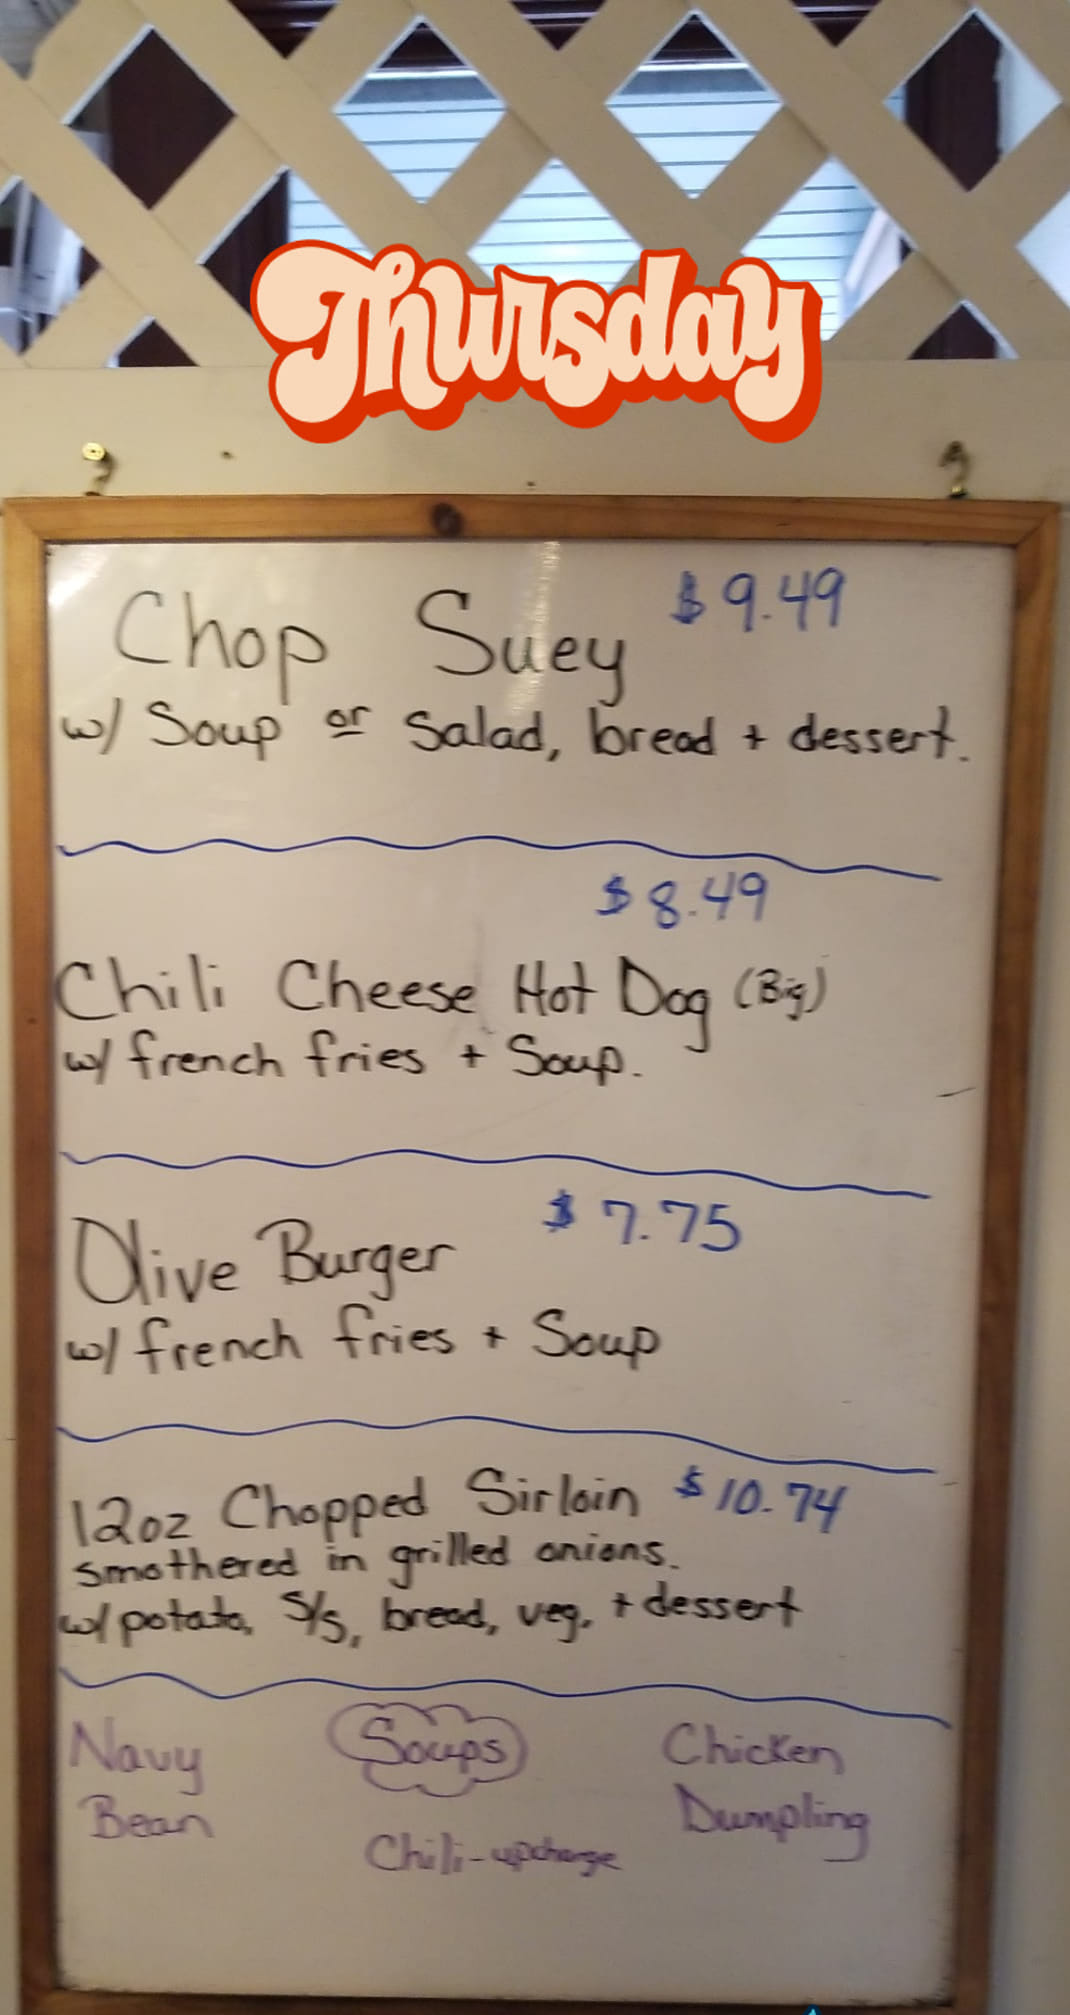 Thursday
Chop Suey $9.49
w/ Soup or Salad, bread + dessert.
$8.49
Chili Cheese Hot Dog (Big)
w/ french fries + Soup.
Olive Burger $7.75
w/ french fries + Soup
12oz Chopped Sirloin $10.74
smothered in grilled onions.
w/ potato, S/S, bread, veg, + dessert
Navy Bean
Soups
Chicken Dumpling
Chili-upcharge